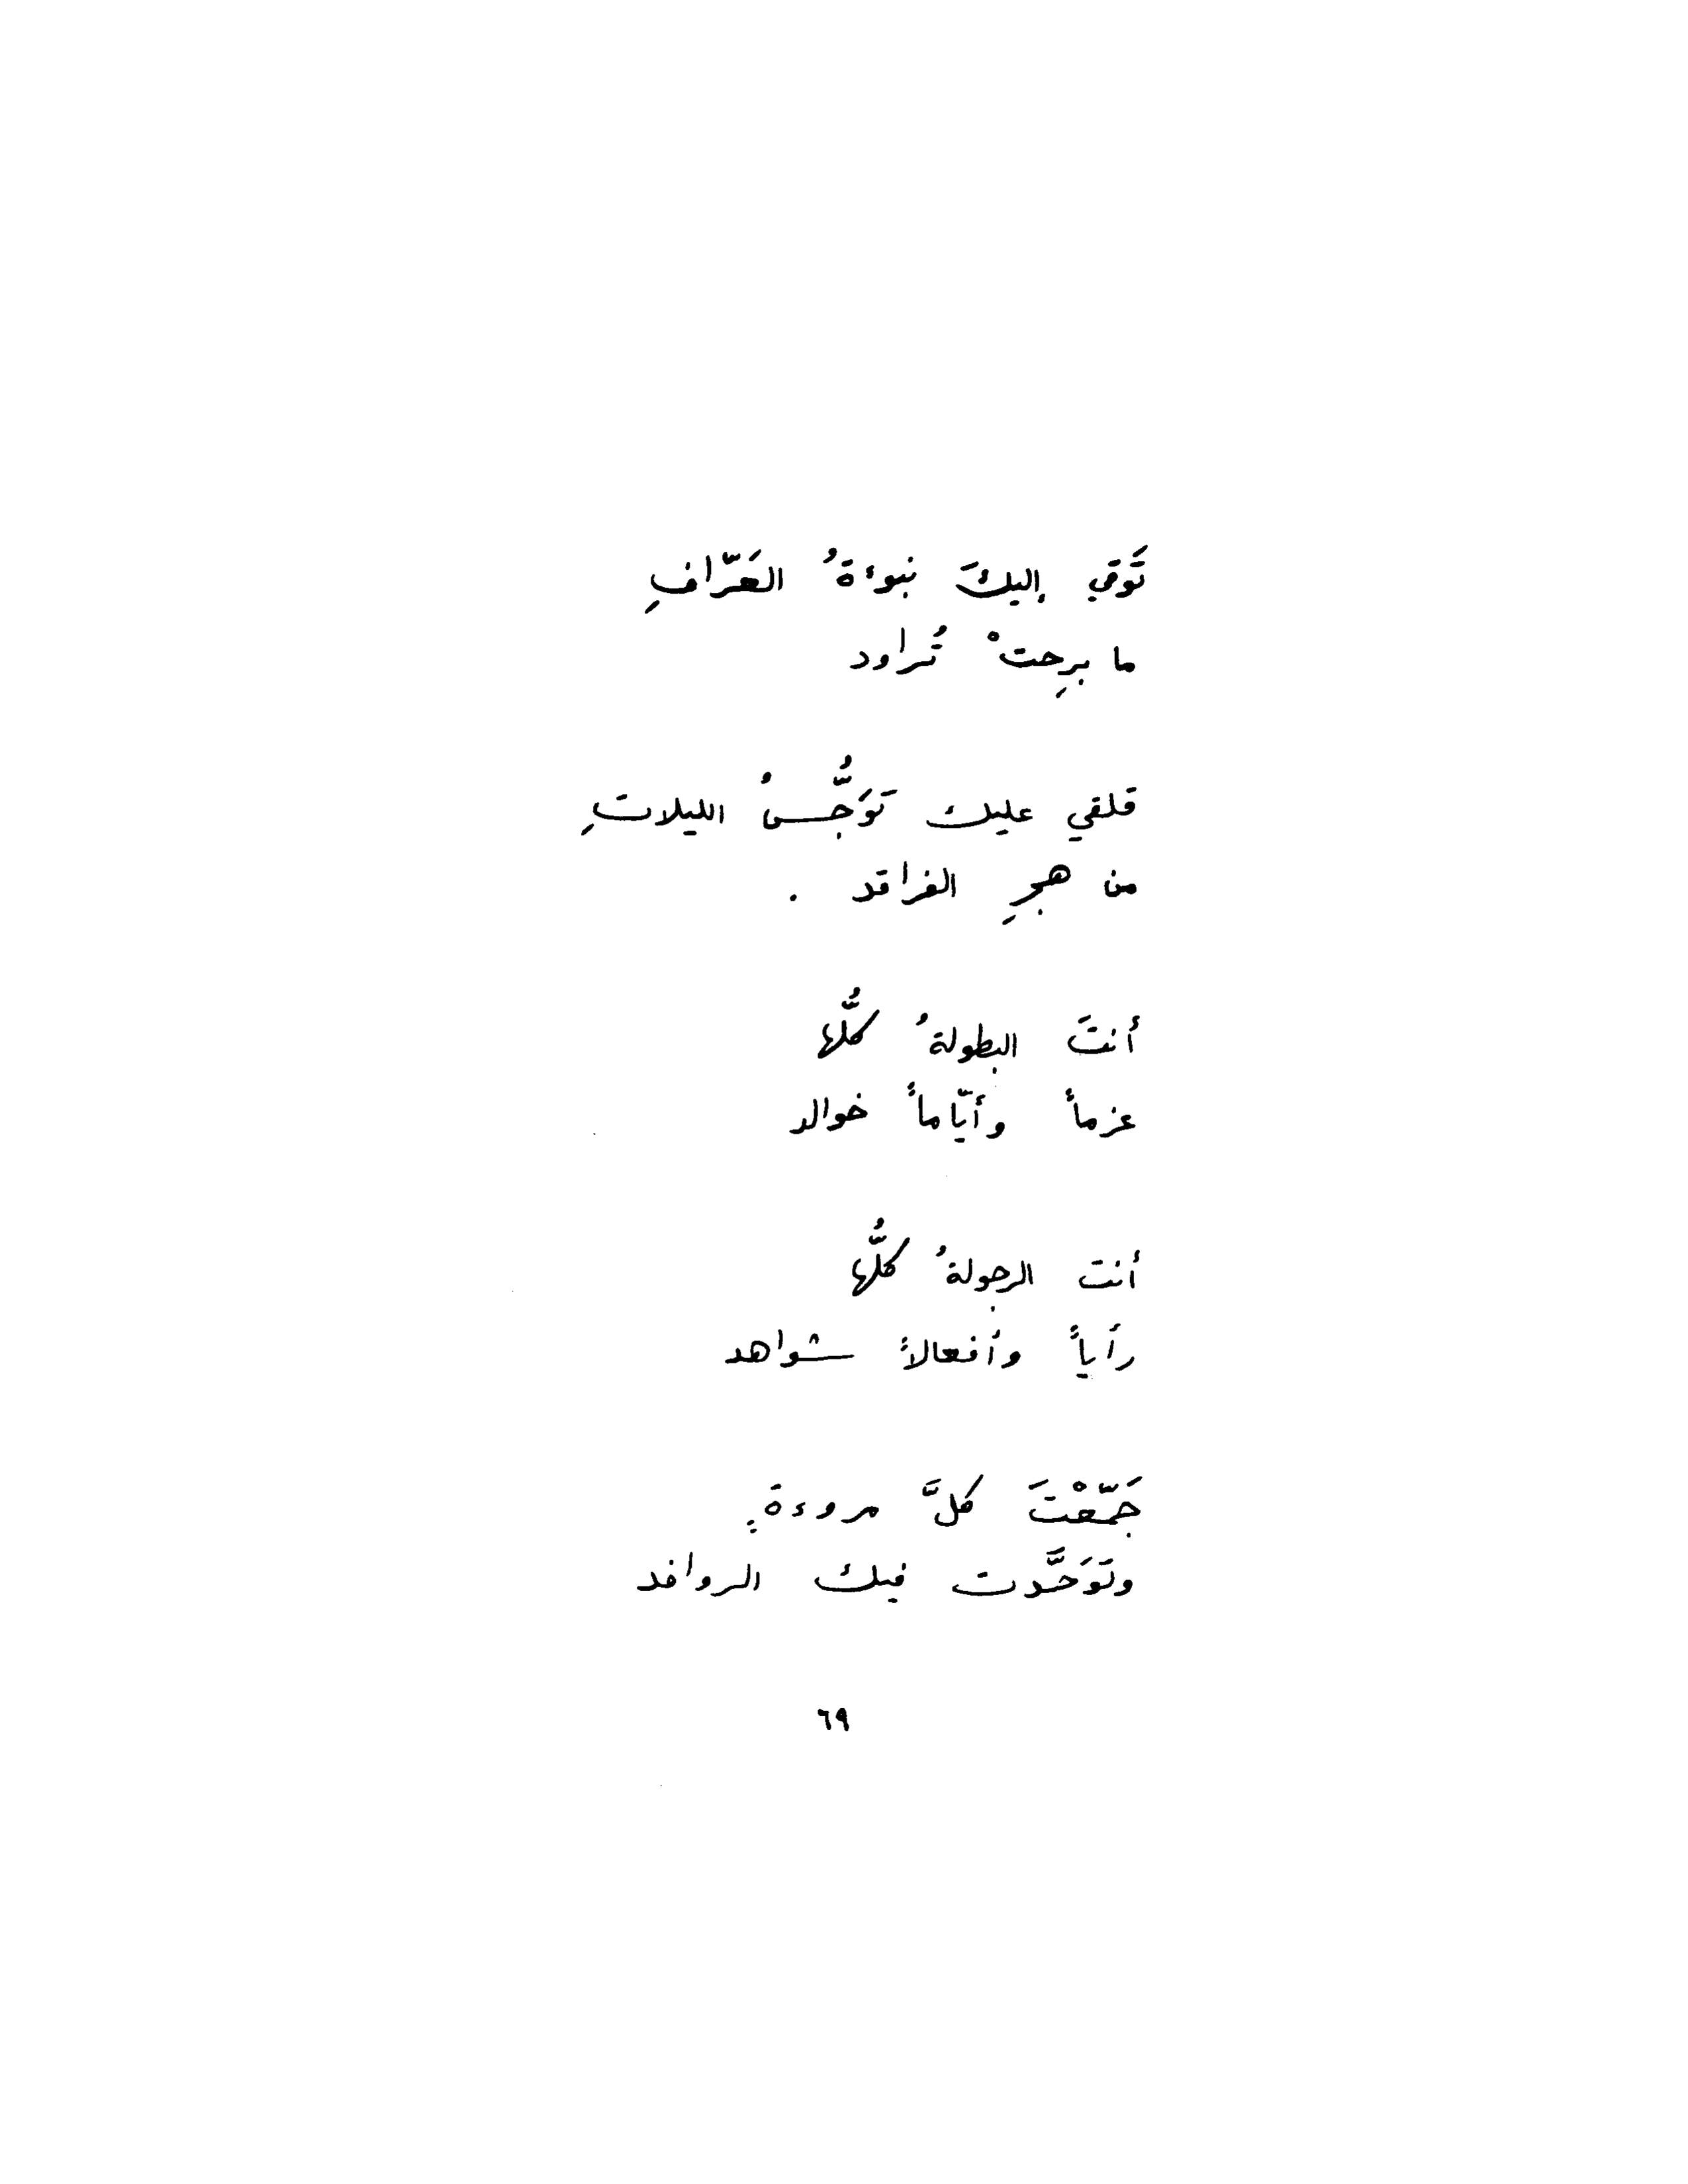 تَوقي إليكَ نبوءةُ العَرّافِ
ما برِحتْ تُراود
قلقي عليك تَوَجُّسُ الليلاتِ
من هجرِ الفراقد .
أنتَ البطولةُ كلُّها
عزماً وأيّاماً خوالد
أنت الرجولةُ كلُّها
رأياً وأفعالاً شواهد
جَمّعْتَ كلَّ مروءةٍ
وتَوَحَّدت فيك الروافد
٦٩